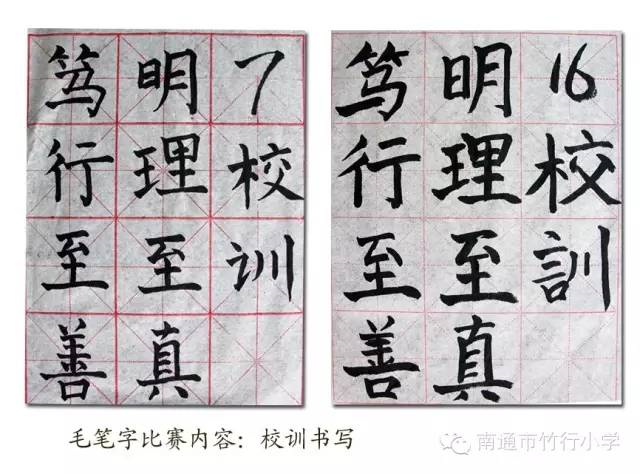 7校训
明理至真
笃行至善
16校訓
明理至真
笃行至善
毛笔字比赛内容：校训书写
南通市竹行小学